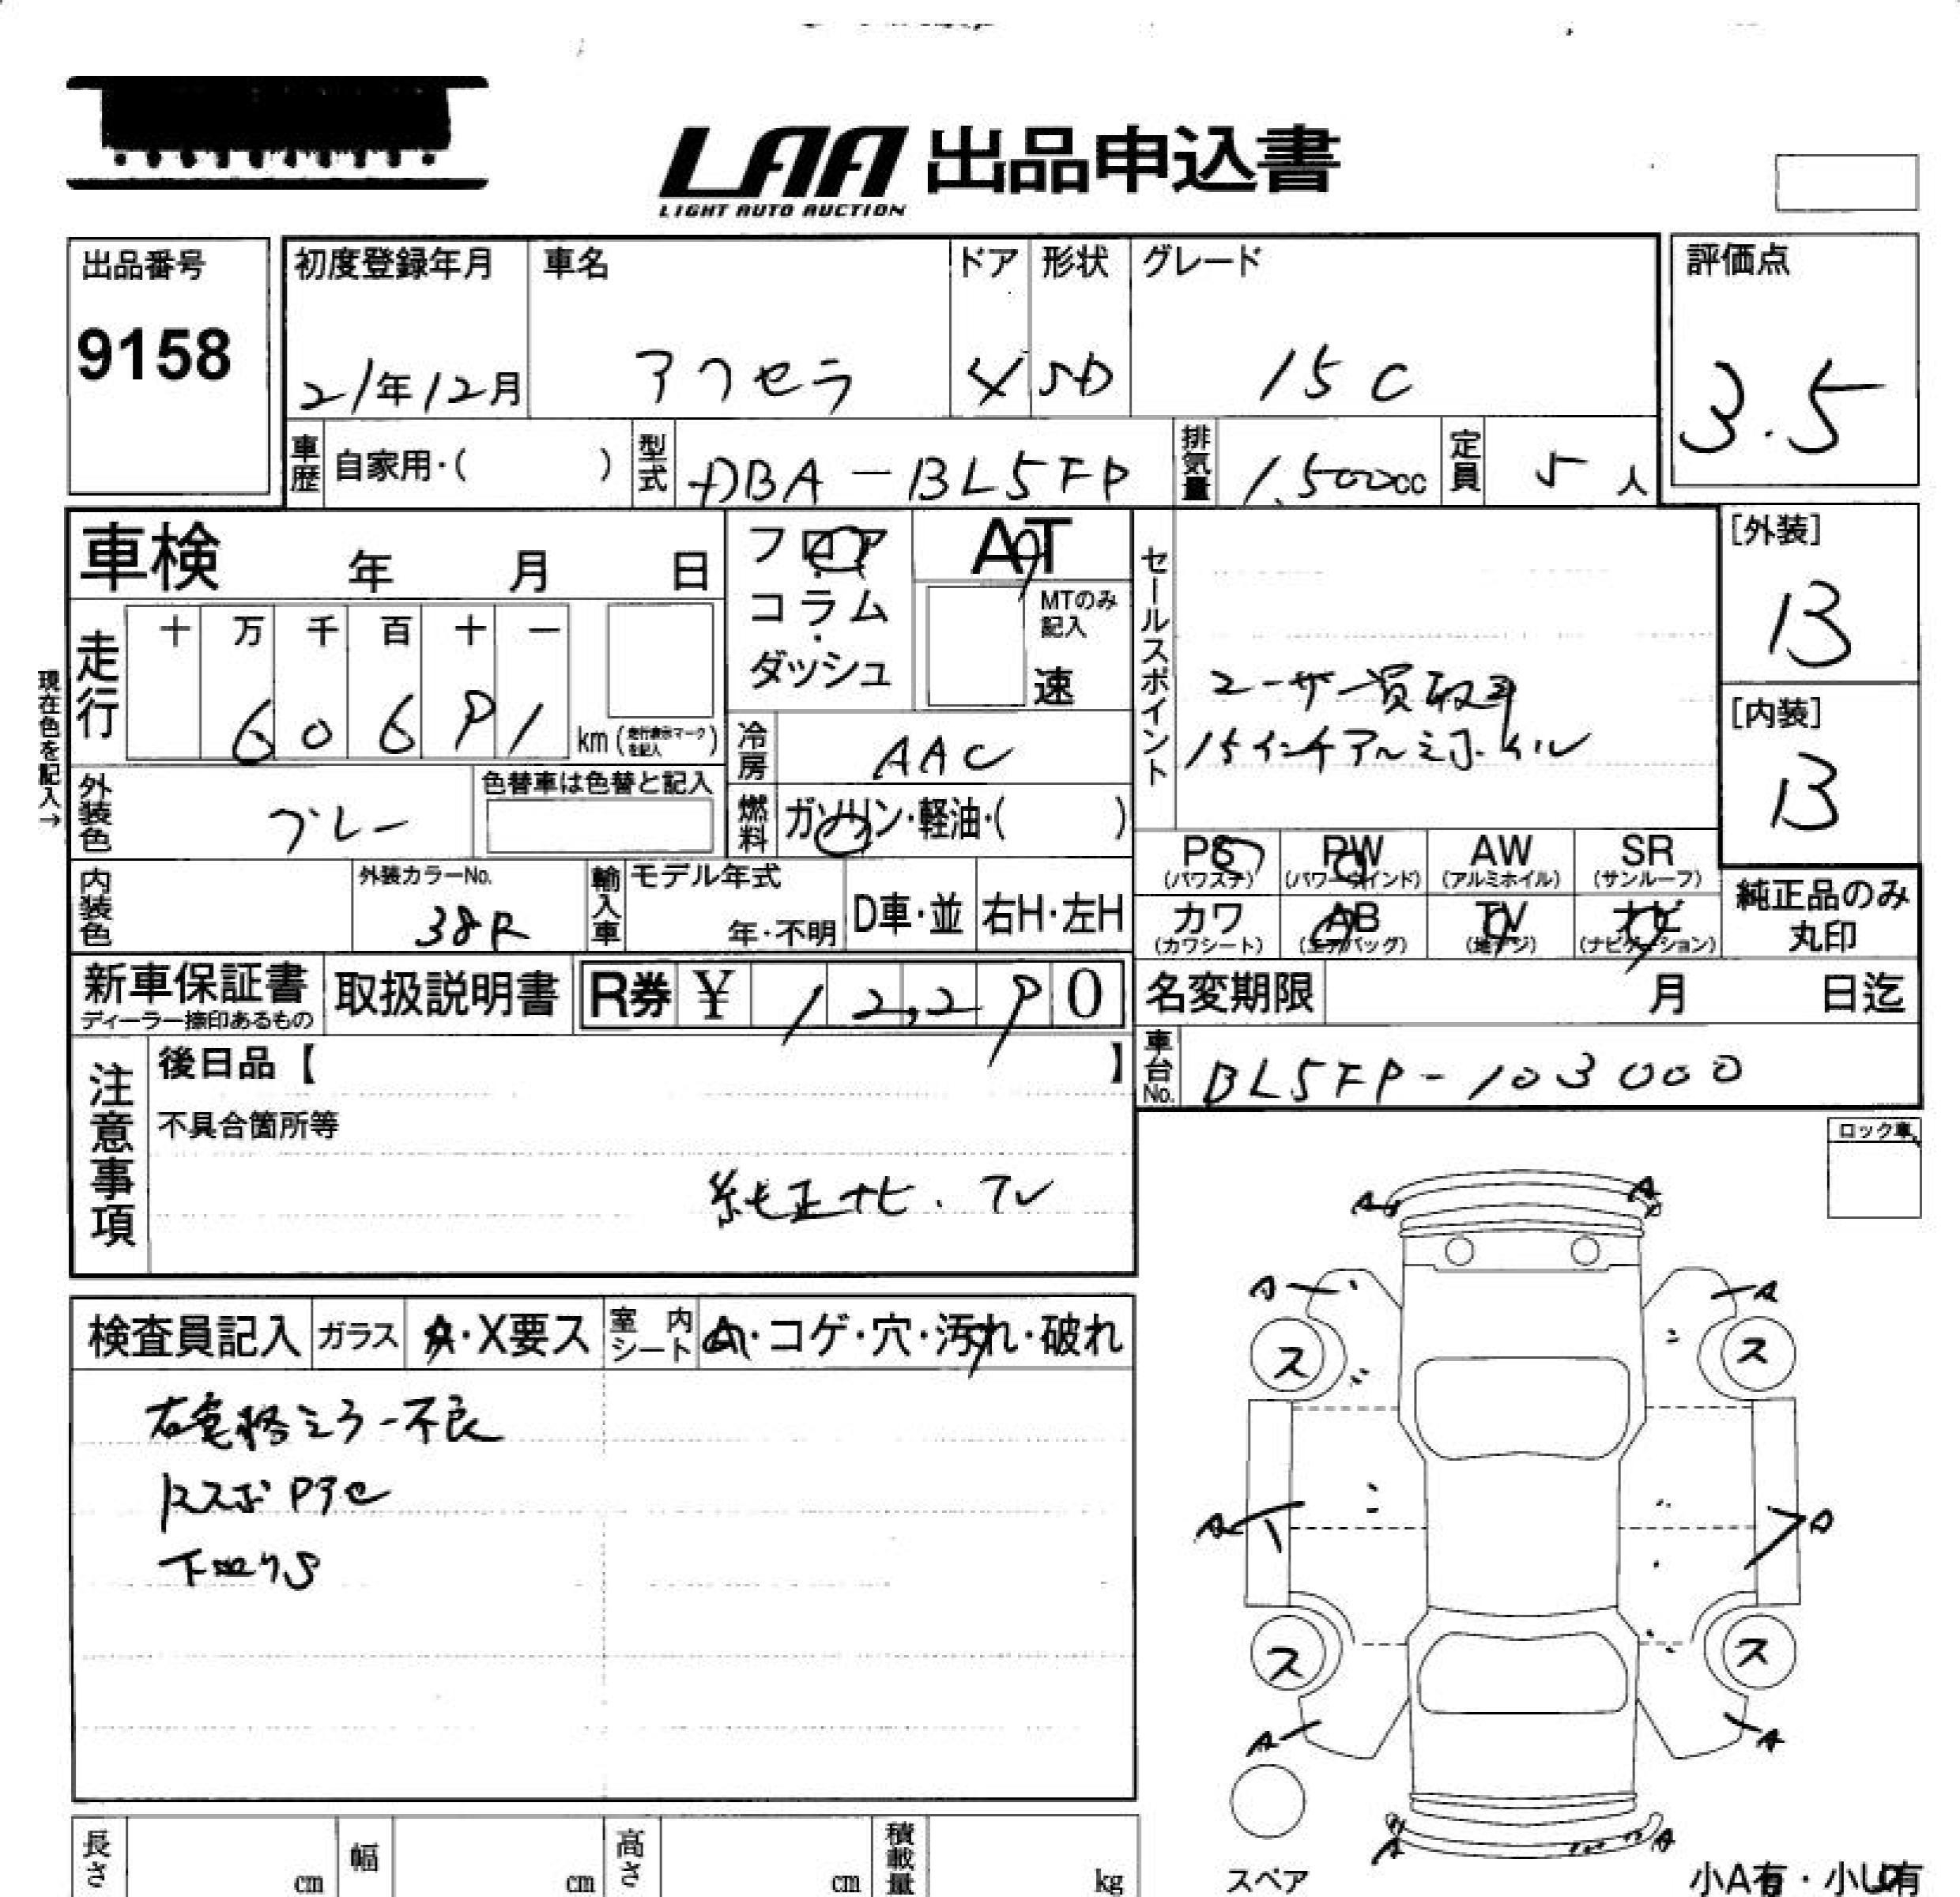 LAA 出品申込書
LIGHT AUTO AUCTION
出品番号
9158
初度登録年月
21年12月
車名
アクセラ
ドア
4
形状
SD
グレード
15C
評価点
3.5
車歴 自家用・( )
型式 DBA-BL5FP
排気量 1,500cc
定員 5人
車検 年 月 日
フロア・コラム・ダッシュ
AT
MTのみ記入
速
セールスポイント
ユーザー買取車
15インチアルミホイル
[外装]
B
[内装]
B
現在色を記入→
走行
十 万 千 百 十 一
6 0 6 9 1 km (走行表示マークを記入)
冷房 AAC
外装色 グレー
色替車は色替と記入
燃料 ガソリン・軽油・( )
PS (パワステ)
PW (パワーウインド)
AW (アルミホイル)
SR (サンルーフ)
内装色
外装カラーNo.
38R
輸入車
モデル年式
年・不明
D車・並
右H・左H
カワ (カワシート)
AB (エアバッグ)
TV (地デジ)
ナビ (ナビゲーション)
純正品のみ
丸印
新車保証書
ディーラー捺印あるもの
取扱説明書
R券 ¥ 12,290
名変期限 月 日迄
車台No. BL5FP-103000
注意事項
後日品【 】
不具合箇所等
純正ナビ.TV
ロック車
検査員記入
ガラス A・X要ス
室内シート A・コゲ・穴・汚れ・破れ
右電格ミラー不良
下回りS
A A
A A
ス ス
A A
ス ス
A A
A A
スペア
小A有・小U有
長さ cm
幅 cm
高さ cm
積載量 kg